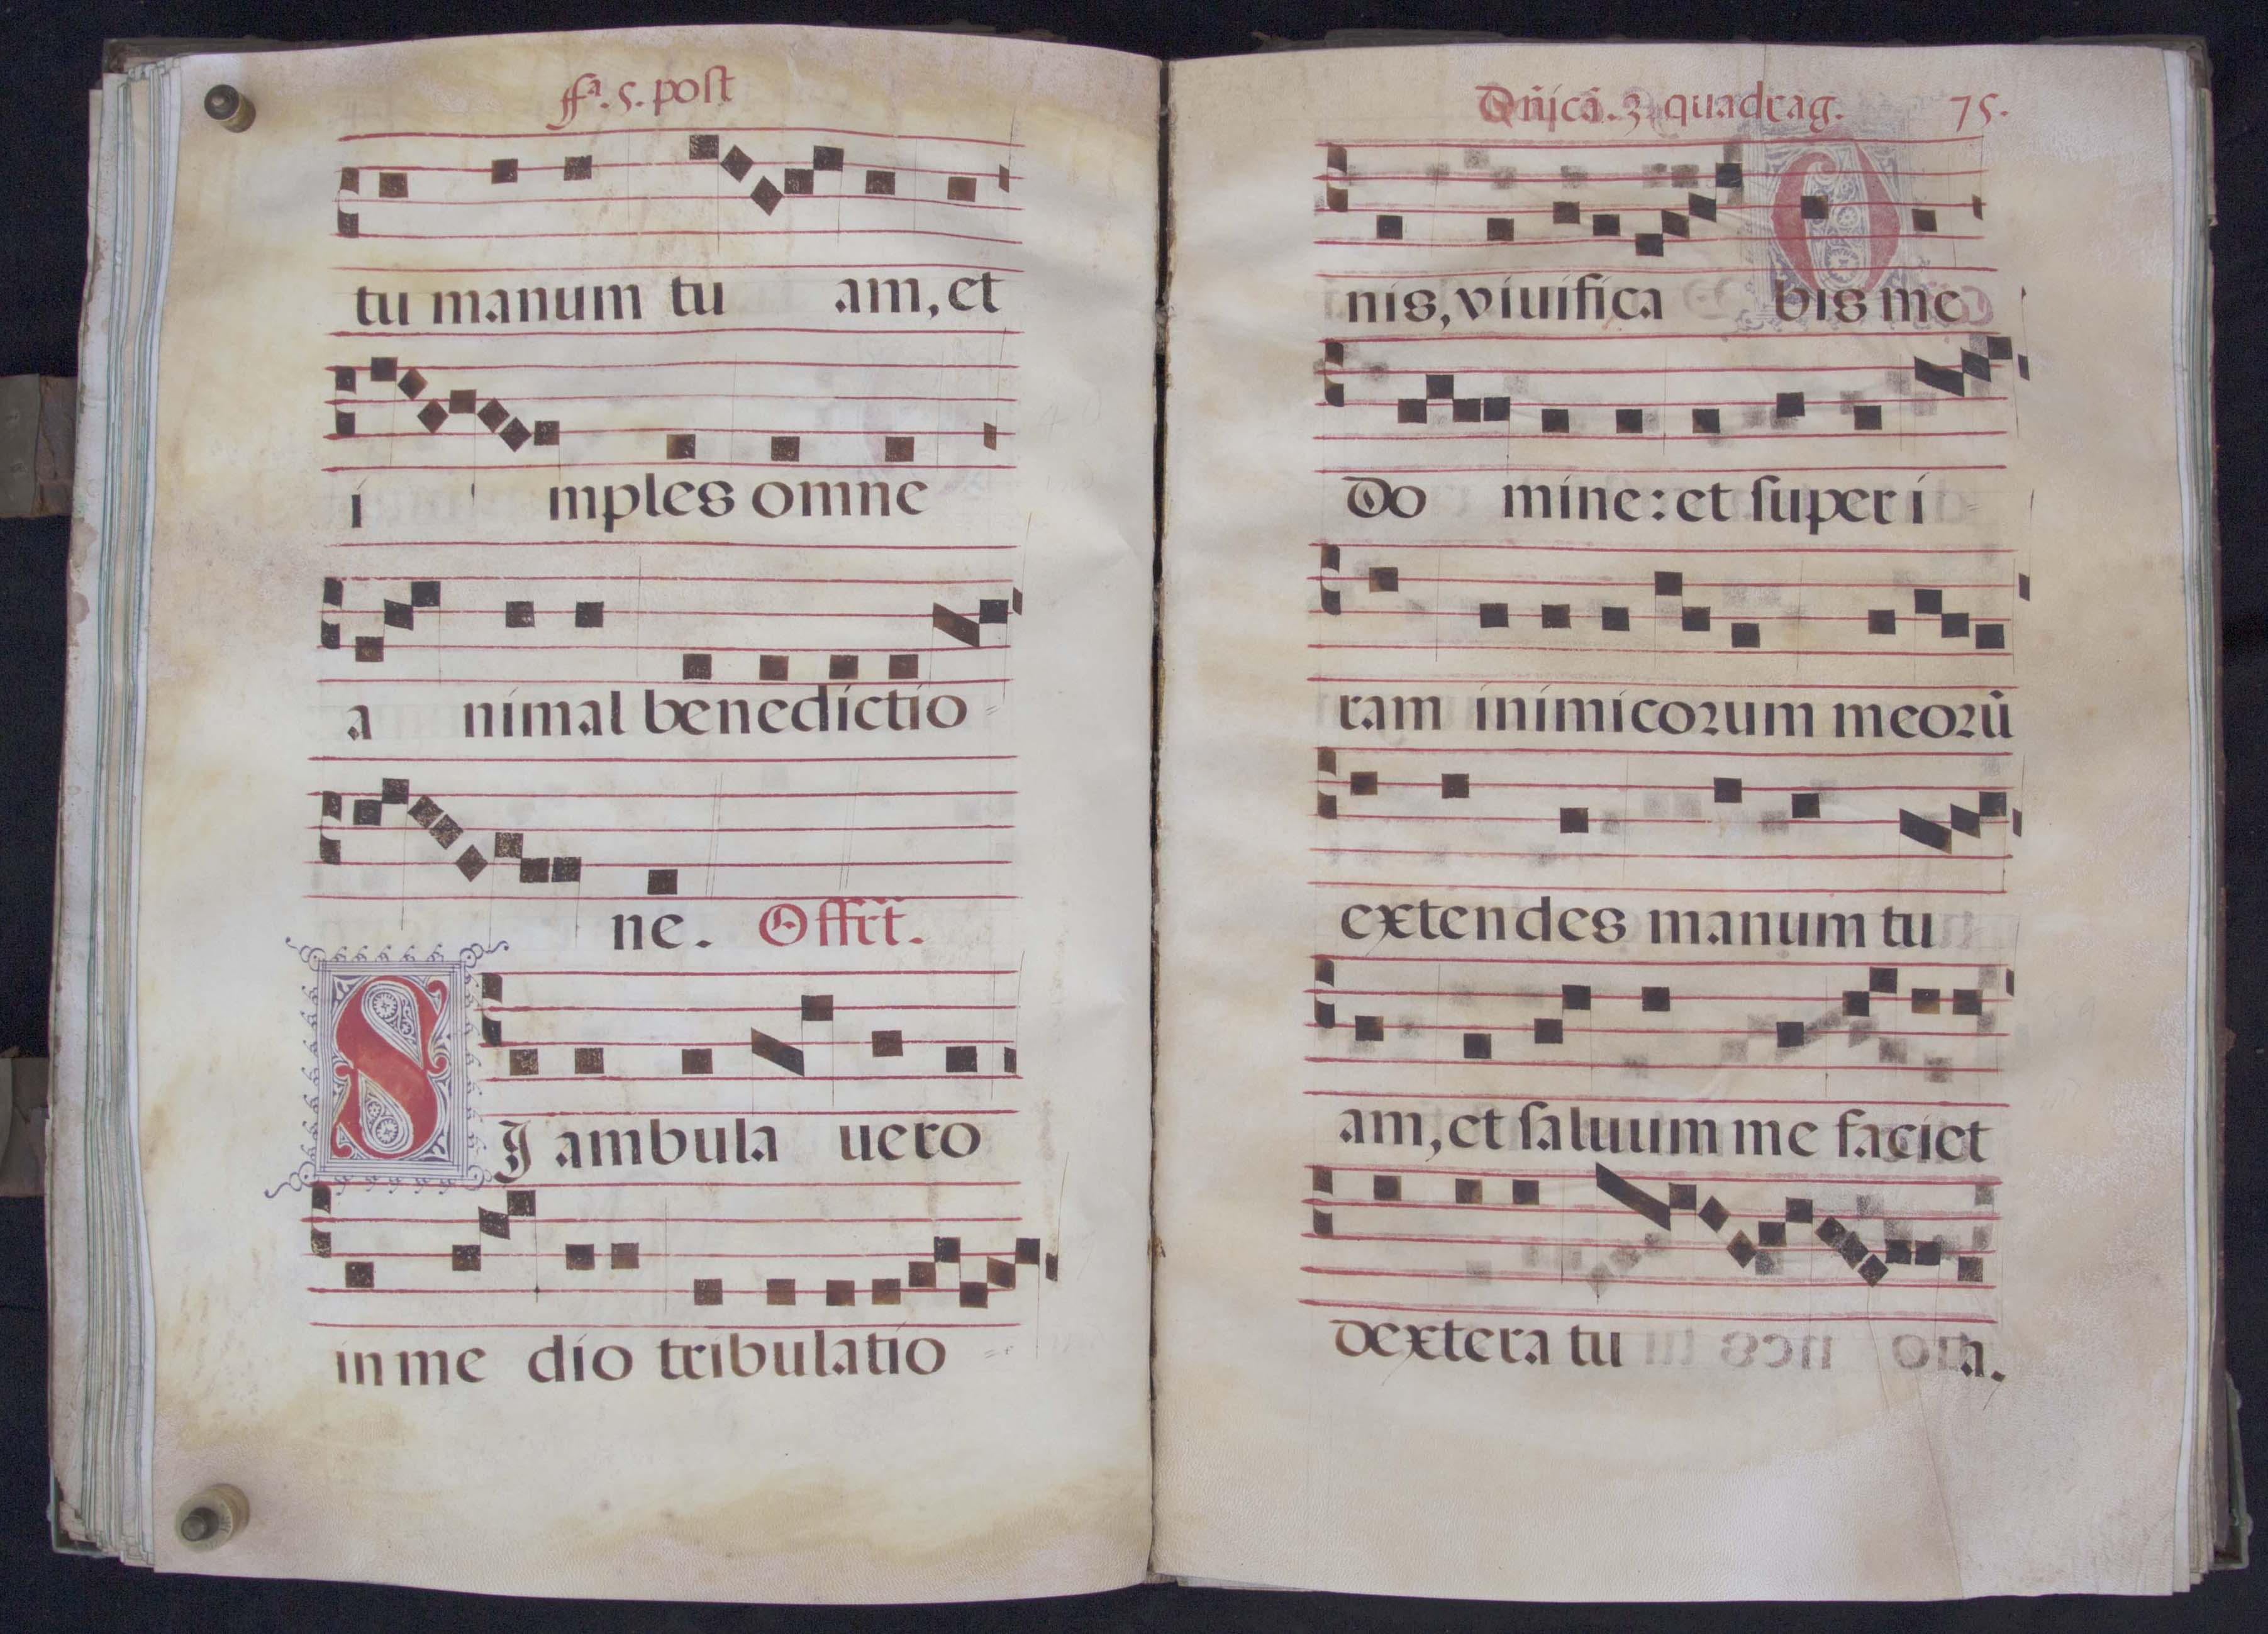 ffª. 5. post
tu manum tu am, et
i mples omne
a nimal benedictio
ne. Offrt̃.
SJ ambula uero
in me dio tribulatio
Dñicã. 3. quadrag. 75.
nis, viuifica bis me
Do mine: et super i
ram inimicorum meorũ
extendes manum tu
am, et saluum me faciet
dextera tu a.